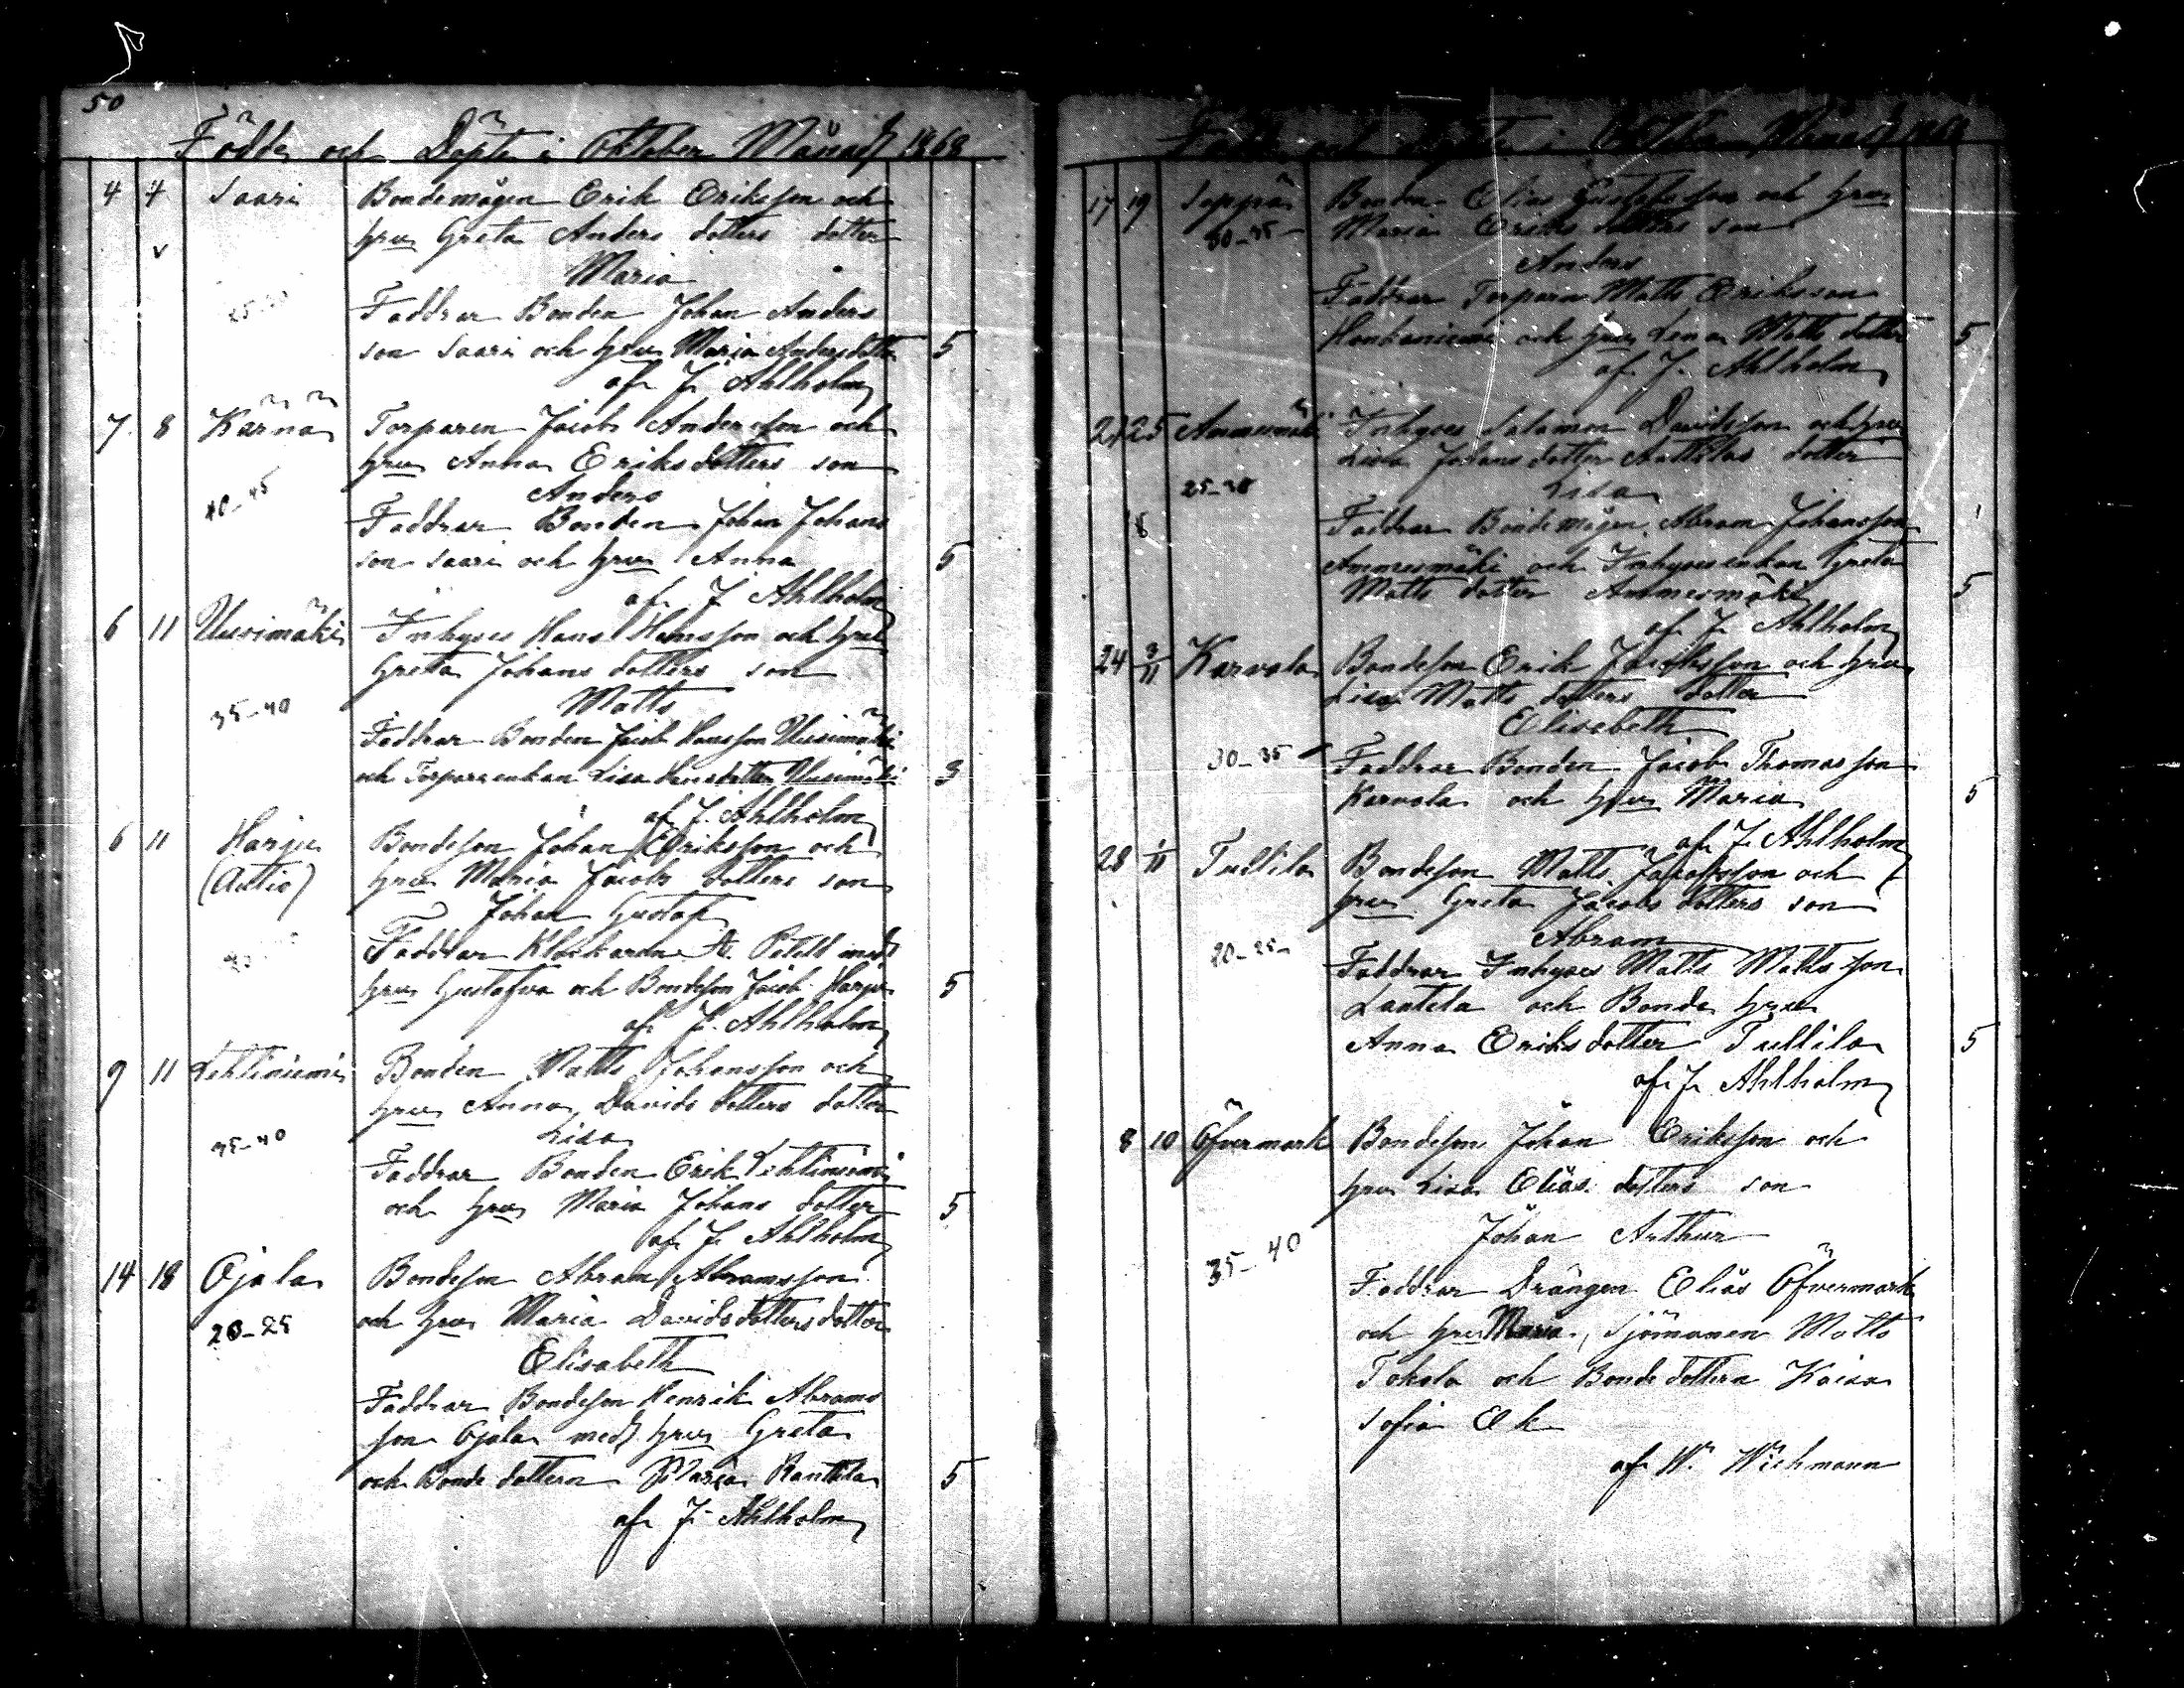 50
Födde och Döpte i Oktober Månad 1868
4 4 Saari Bondemågen Erik Eriksson och
hru Greta Anders dotters dotter
v
Maria
25-30 Faddrar Bonden Johan Anders
son Saari och hru Maria Andersdotter 5
af J. Ahlholm
7 8 Kärnä Torparen Jacob Andersson och
hru Anna Eriksdotters son
Anders
40-45 Faddrar Bonden Johan Johans
son Saari och hru Anna 5
af J. Ahlholm
6 11 Uusimäki Inhyses Hans Hansson och hru
Greta Johans dotters son
Matts
35-40
Faddrar Bonden Jacob Hansson Uusimäki
och Torpareenkan Lisa Hansdotter Uusimäki 3
af J. Ahlholm
6 11 Harju Bondeson Johan Eriksson och
(Autio) hru Maria Jacobs dotters son
Johan Gustaf
Faddrar Klockaren A. Petell med
hru Gustafva och Bondeson Jacob Harju 5
af J. Ahlholm
9 11 Lehtiniemi Bonden Matts Johansson och
hru Anna Davids dotters dotter
35-40 Lisa
Faddrar Bonden Erik Lehtiniemi
och hru Maria Johans dotter 5
af J. Ahlholm
14 18 Ojala Bondeson Abram Abramsson
20-25 och hru Maria Davidsdotters dotter
Elisabeth
Faddrar Bondeson Henrik Abrams
son Ojala med hru Greta
och Bonde dottern Maria Rantala 5
af J. Ahlholm
Födde och döpte i Oktober Månad 1868
17 19 Seppä Bonden Elias Gustafsson och hru
30-35 Maria Eriks dotters son
Anders
Faddrar Torparen Matts Eriksson
Honkaniemi och hru Lena Matts dotter 5
af J. Ahlholm
25 Ammesmäki Inhyses Salomon Davidsson och hru
Lisa Johans dotter Anttilas dotter
25-30 Lisa
Faddrar Bondemågen Abram Johansson
Ammesmäki och Inhysesenkan Greta
Matts dotter Ammesmäki 5
af J. Ahlholm
24 3/11 Karvala Bondeson Erik Jacobsson och hru
Lisa Matts dotters dotter
Elisabeth
30-35 Faddrar Bonden Jacob Thomasson
Karvala och hru Maria 5
af J. Ahlholm
28 1/11 Tullila Bondeson Matts Jacobsson och
hru Greta Jacobs dotters son
20-25 Abram
Faddrar Inhyses Matts Mattsson
Lantela och Bonde hru
Anna Eriks dotter Tullila 5
af J. Ahlholm
8 10 Öfvermark Bondeson Johan Eriksson och
hru Lisa Elias dotters son
Johan Arthur
35-40 Faddrar Drängen Elias Öfvermark
och hru Maria, Sjömannen Matts
Tokola och Bonde dottern Kaisa
Sofia Ek
af W. Wichmann